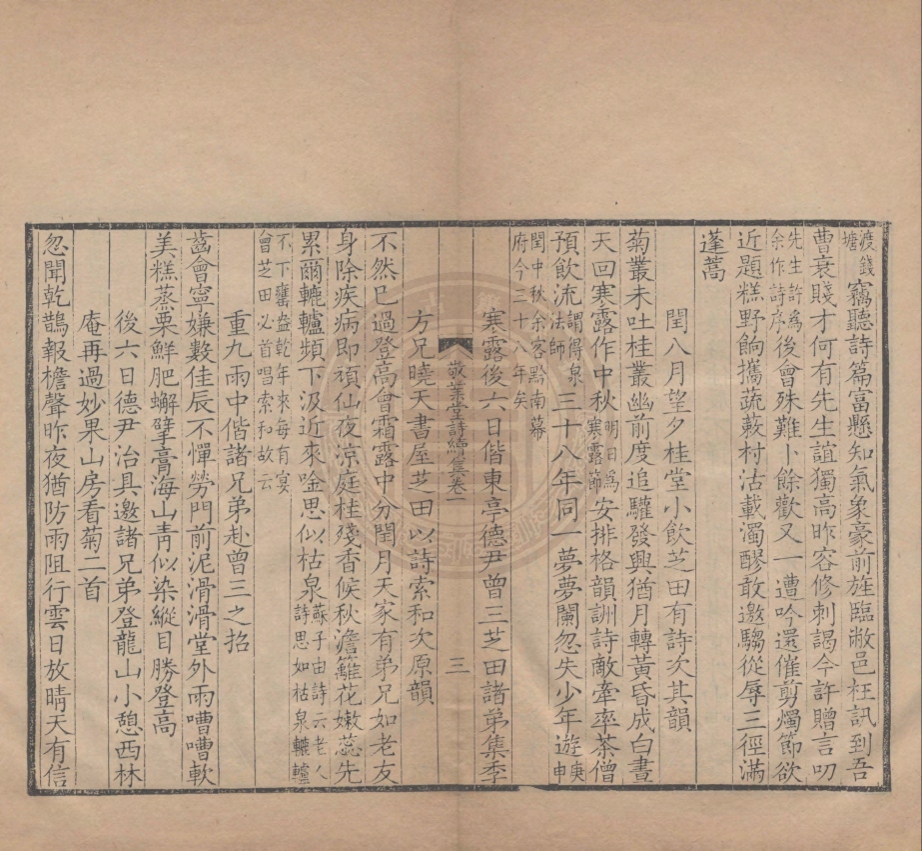 渡錢塘竊聽詩篇富懸知氣象豪前旌臨敝邑枉訊到吾
曹衰賤才何有先生誼獨高昨容修刺謁今許贈言叨
先生許為余作詩序後會殊難卜餘歡又一遭吟還催剪燭節欲
近題糕野餉攜蔬蔌村沽載濁醪敢邀騶從辱三徑滿
蓬蒿
閏八月望夕桂堂小飲芝田有詩次其韻
菊叢未吐桂叢幽前度追驩發興猶月轉黃昏成白晝
天回寒露作中秋明日為寒露節安排格韻詶詩敵牽率茶僧
預飲流謂得泉法師三十八年同一夢夢闌忽失少年遊庚申
閏中秋余客黔南幕府今三十八年矣
寒露後六日偕東亭德尹曾三芝田諸弟集季
敬業堂詩續集卷一
三
方兄曉天書屋芝田以詩索和次原韻
不然已過登高會霜露中分閏月天家有弟兄如老友
身除疾病即頑仙夜涼庭桂殘香候秋澹籬花嫩蕊先
累爾轆轤頻下汲近來唫思似枯泉蘇子由詩云老人詩思如枯泉轆轤
不下甕盎乾年來每有宴會芝田必首唱索和故云
重九雨中偕諸兄弟赴曾三之招
齒會寧嫌數佳辰不憚勞門前泥滑滑堂外雨嘈嘈軟
美糕蒸栗鮮肥蠏擘膏海山青似染縱目勝登高
後六日德尹治具邀諸兄弟登龍山小憩西林
庵再過妙果山房看菊二首
忽聞乾鵲報檐聲昨夜猶防雨阻行雲日放晴天有信